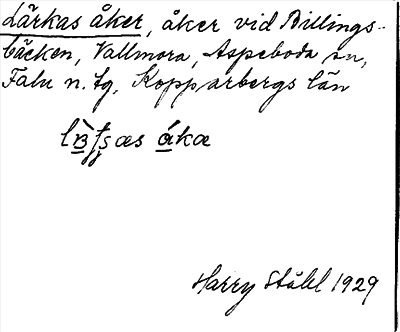 Lärkas åker, åker vid Billings-
bäcken, Vallmora, Aspeboda sn,
Falu n. tg, Kopparbergs län
Harry Ståhl 1929